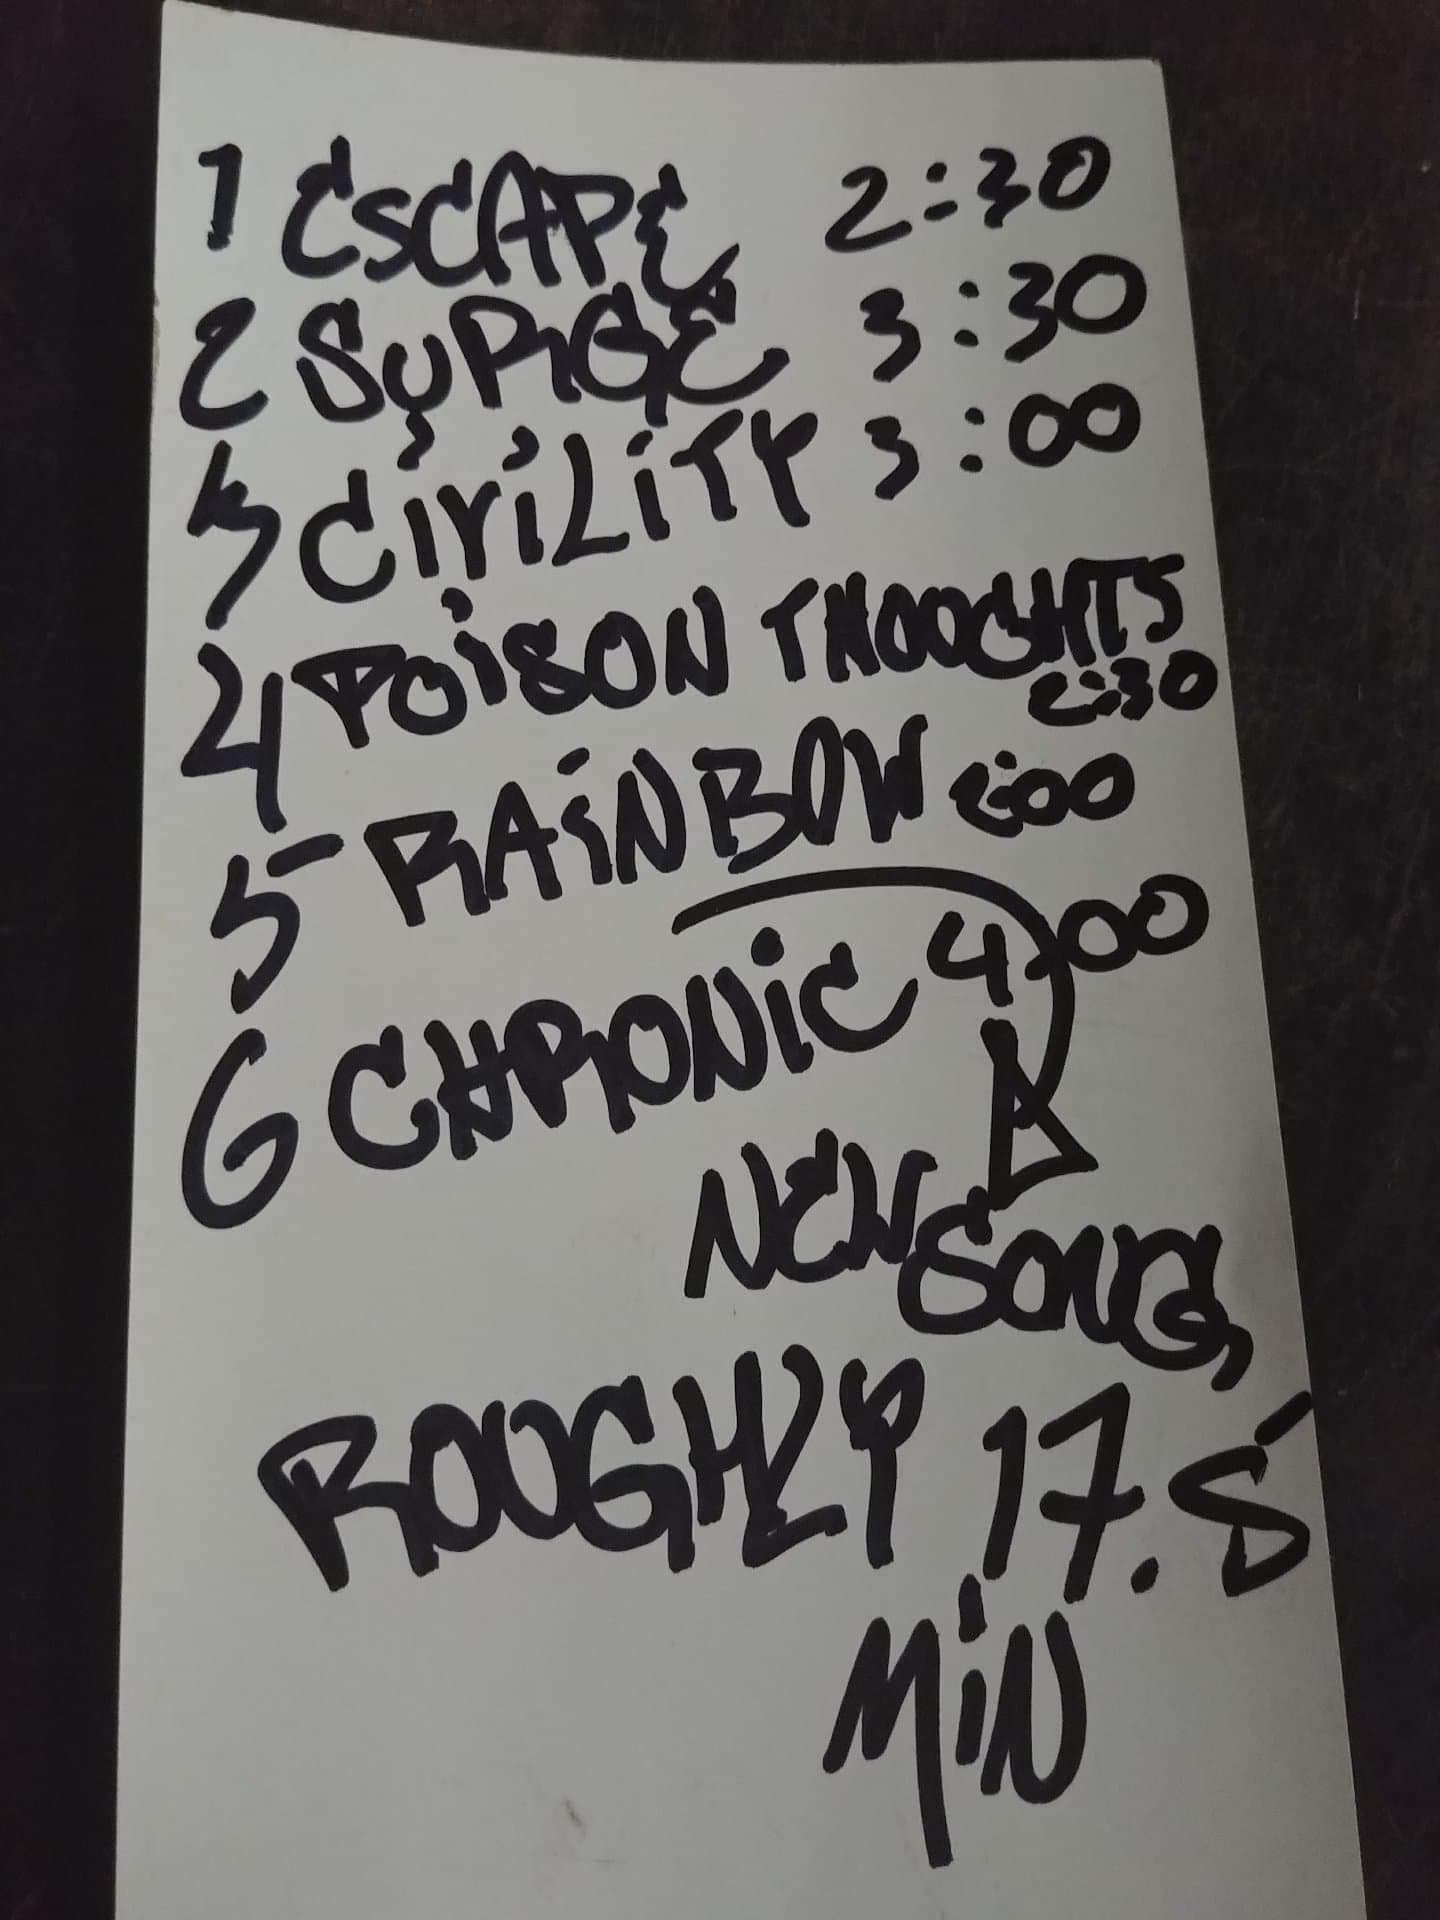 1 ESCAPE 2:30
2 SURGE 3:30
3 CIVILITY 3:00
4 POISON THOUGHTS
2:30
5 RAINBOW 2:00
6 CHRONIC 4:00
NEW SONG
ROUGHLY 17.5
MIN